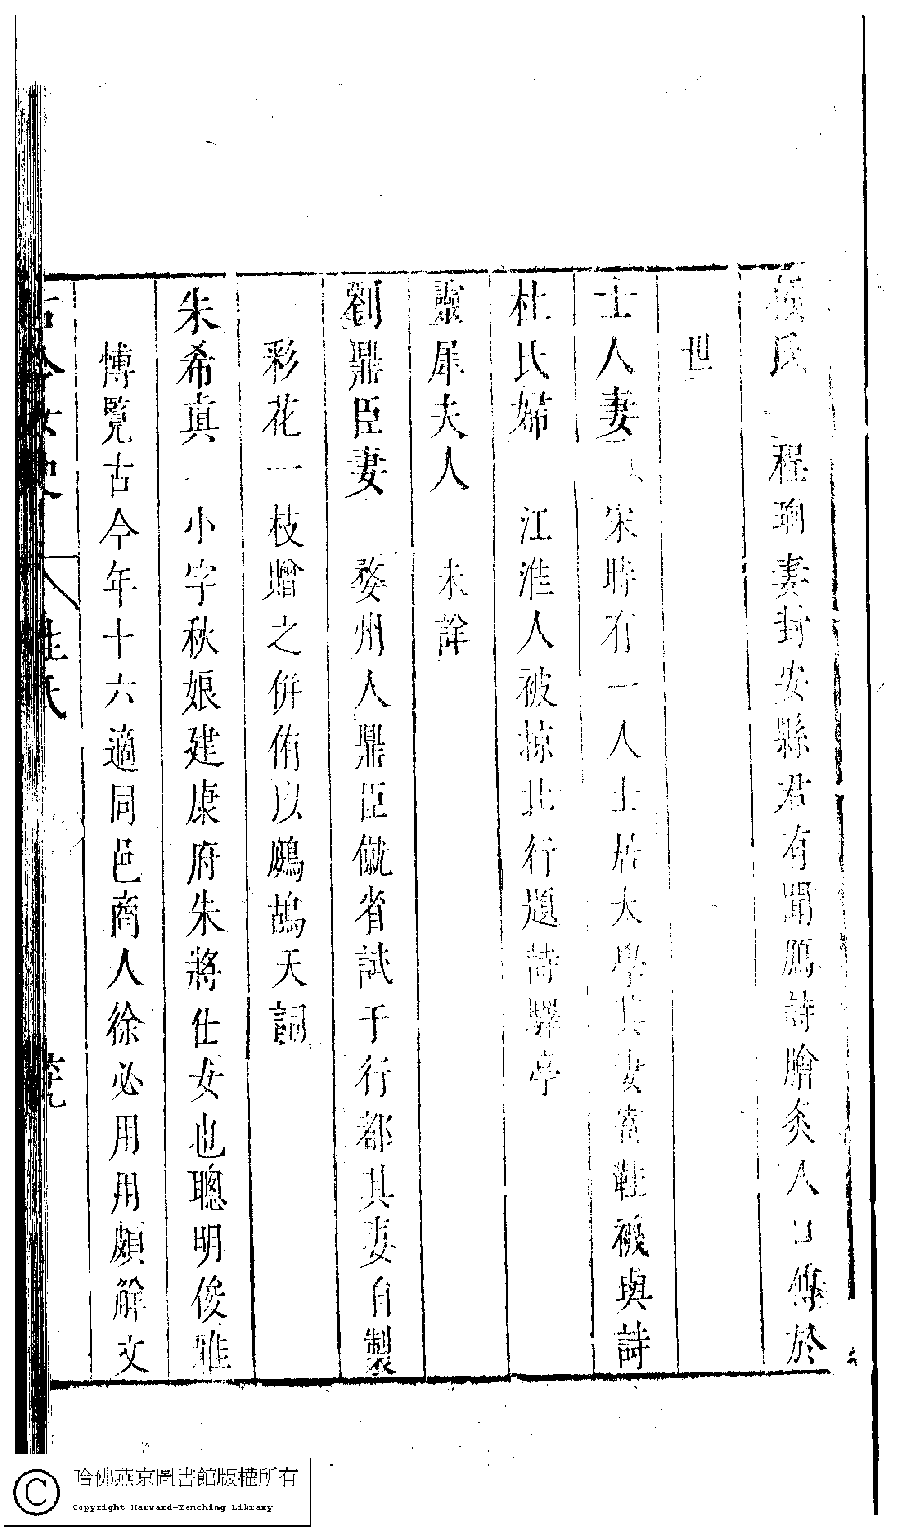 氏 程珣妻封安縣君有聞鴈詩膾炙人口傳於
世
士人妻 宋時有一人士居大學其妻寄鞋襪與詩
杜氏婦 江淮人被掠北行題詩驛亭
靈犀夫人 未詳
劉鼎臣妻 婺州人鼎臣就省試于行都其妻自製
彩花一枝贈之併侑以鷓鴣天詞
朱希真 小字秋娘建康府朱將仕女也聰明俊雅
博覽古今年十六適同邑商人徐必用用頗解文
古今女史 姓氏
哈佛燕京圖書館版權所有
Copyright Harvard-Yenching Library